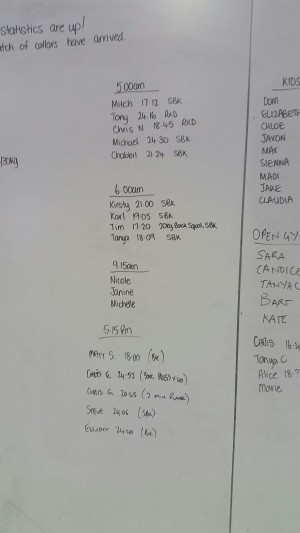 statistics are up!
tch of collars have arrived.
/30kg
5:00am
Mitch 17:12 SBK
Tony 24:16 RXD
Chris N 18:45 RXD
Michael 24:30 SBK
Chabbil 21:24 SBK
6:00am
Kirsty 21:00 SBK
Karl 19:05 SBK
Tim 17:20 20kg Back Squat, SBK
Tanya 18:09 SBK
9:15am
Nicole
Janine
Michelle
5:15pm
Matt S. 18:00 (BK)
Chris G. 24:52
Chris G. 20:55 (2
Steve 24:06 (SBK)
Elliott 24:40 (BK)
KIDS
DOM
ELIZABETH
CHLOE
JAXON
MAX
SIENNA
MADI
JAKE
CLAUDIA
OPEN GY
SARA
CANDICE
TANYA C
BART
KATE
Chris 16:
Tanya C
Alice 18:
Marie